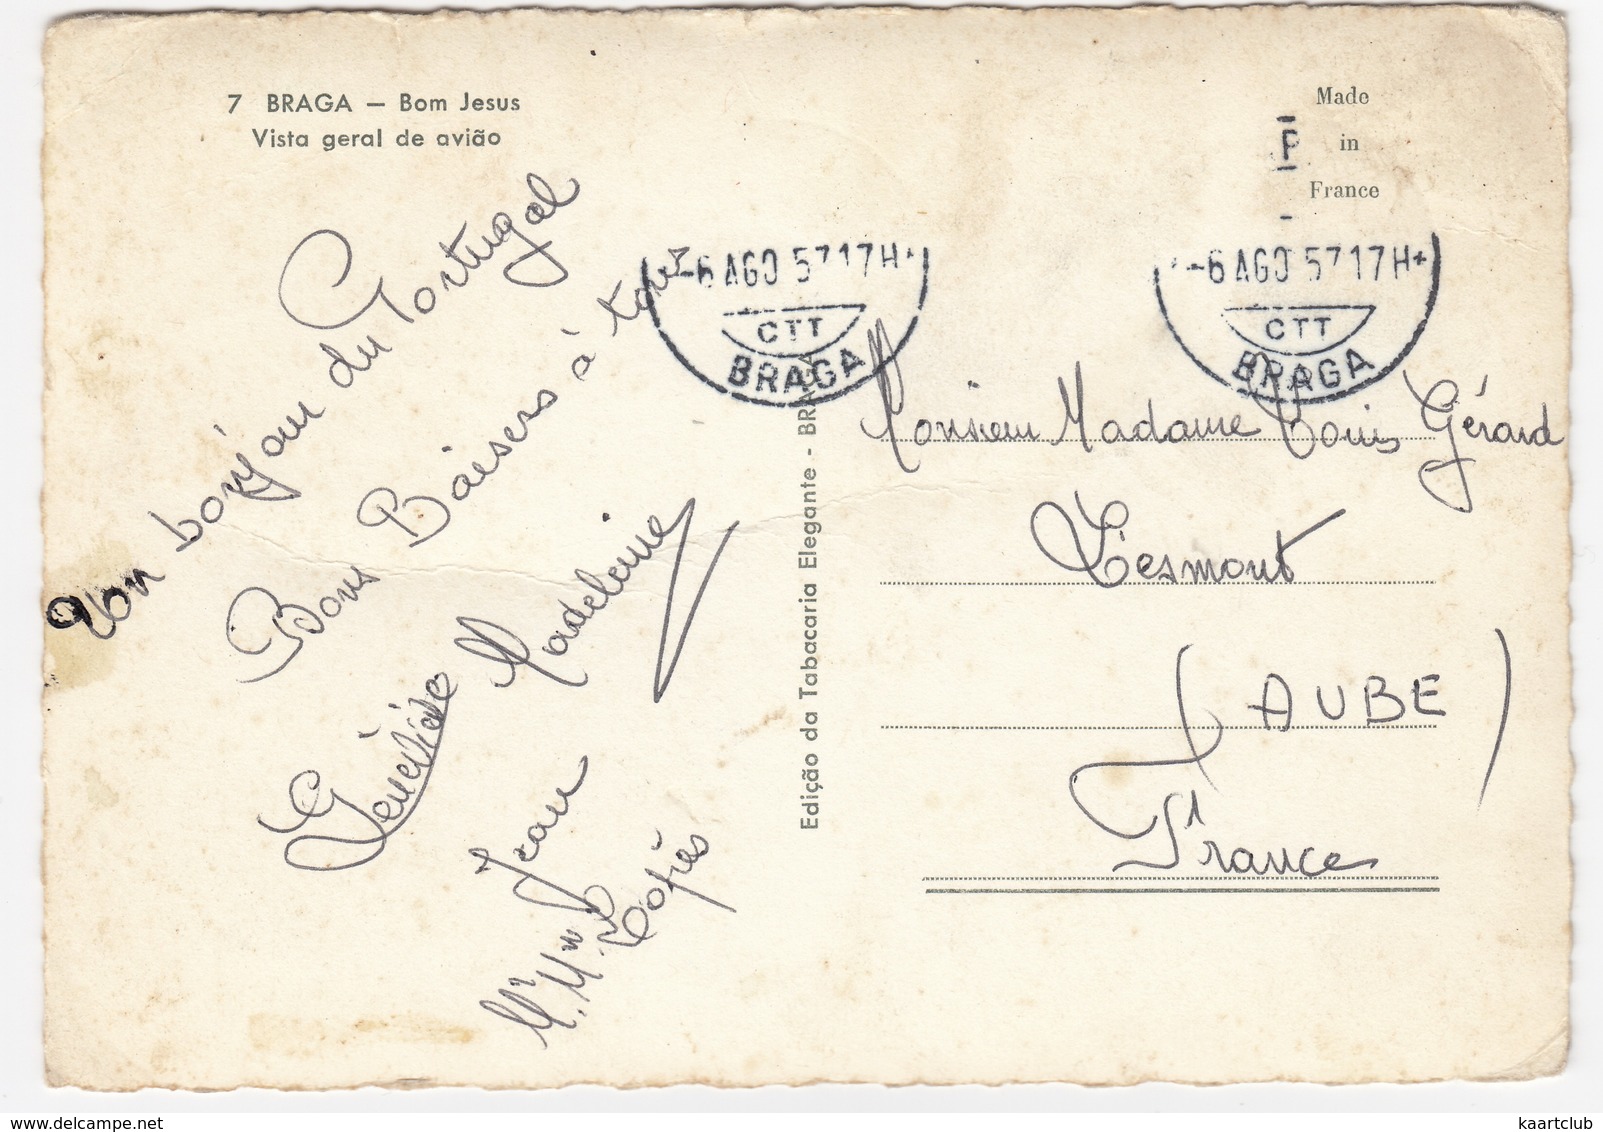 7 BRAGA — Bom Jesus
Vista geral de avião
Made
in
France
P
-6 AGO 57 17H
CTT
BRAGA
-6 AGO 57 17H
CTT
BRAGA
Un bonjour du Portugal
Bons Baisers à tous
Geneviève Madeleine
Jean
Mr Mme
Edição da Tabacaria Elegante - BRAGA
Monsieur Madame Louis Gérard
Lesmont
(AUBE)
France
kaartclub
www.delcampe.net